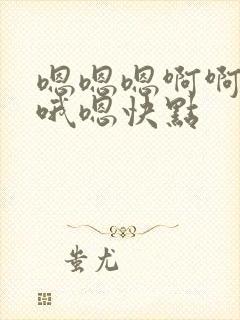 嗯嗯嗯啊啊
哦嗯快點
蚩尤